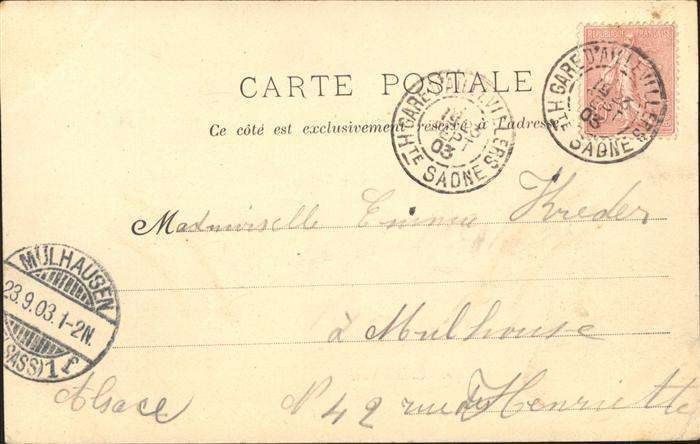 REPUBLIQUE FRANÇAISE
CARTE POSTALE
Ce côté est exclusivement réservé à l'adresse
GARE D'AILLEVILLERS
Hte SAONE
03
GARE D'AILLEVILLERS
Hte SAONE
03
Mademoiselle Emma Kreder
MÜLHAUSEN
23.9.03.1-2N.
(ELSASS) 1 r
à Mulhouse
Alsace N 42 rue Henriette